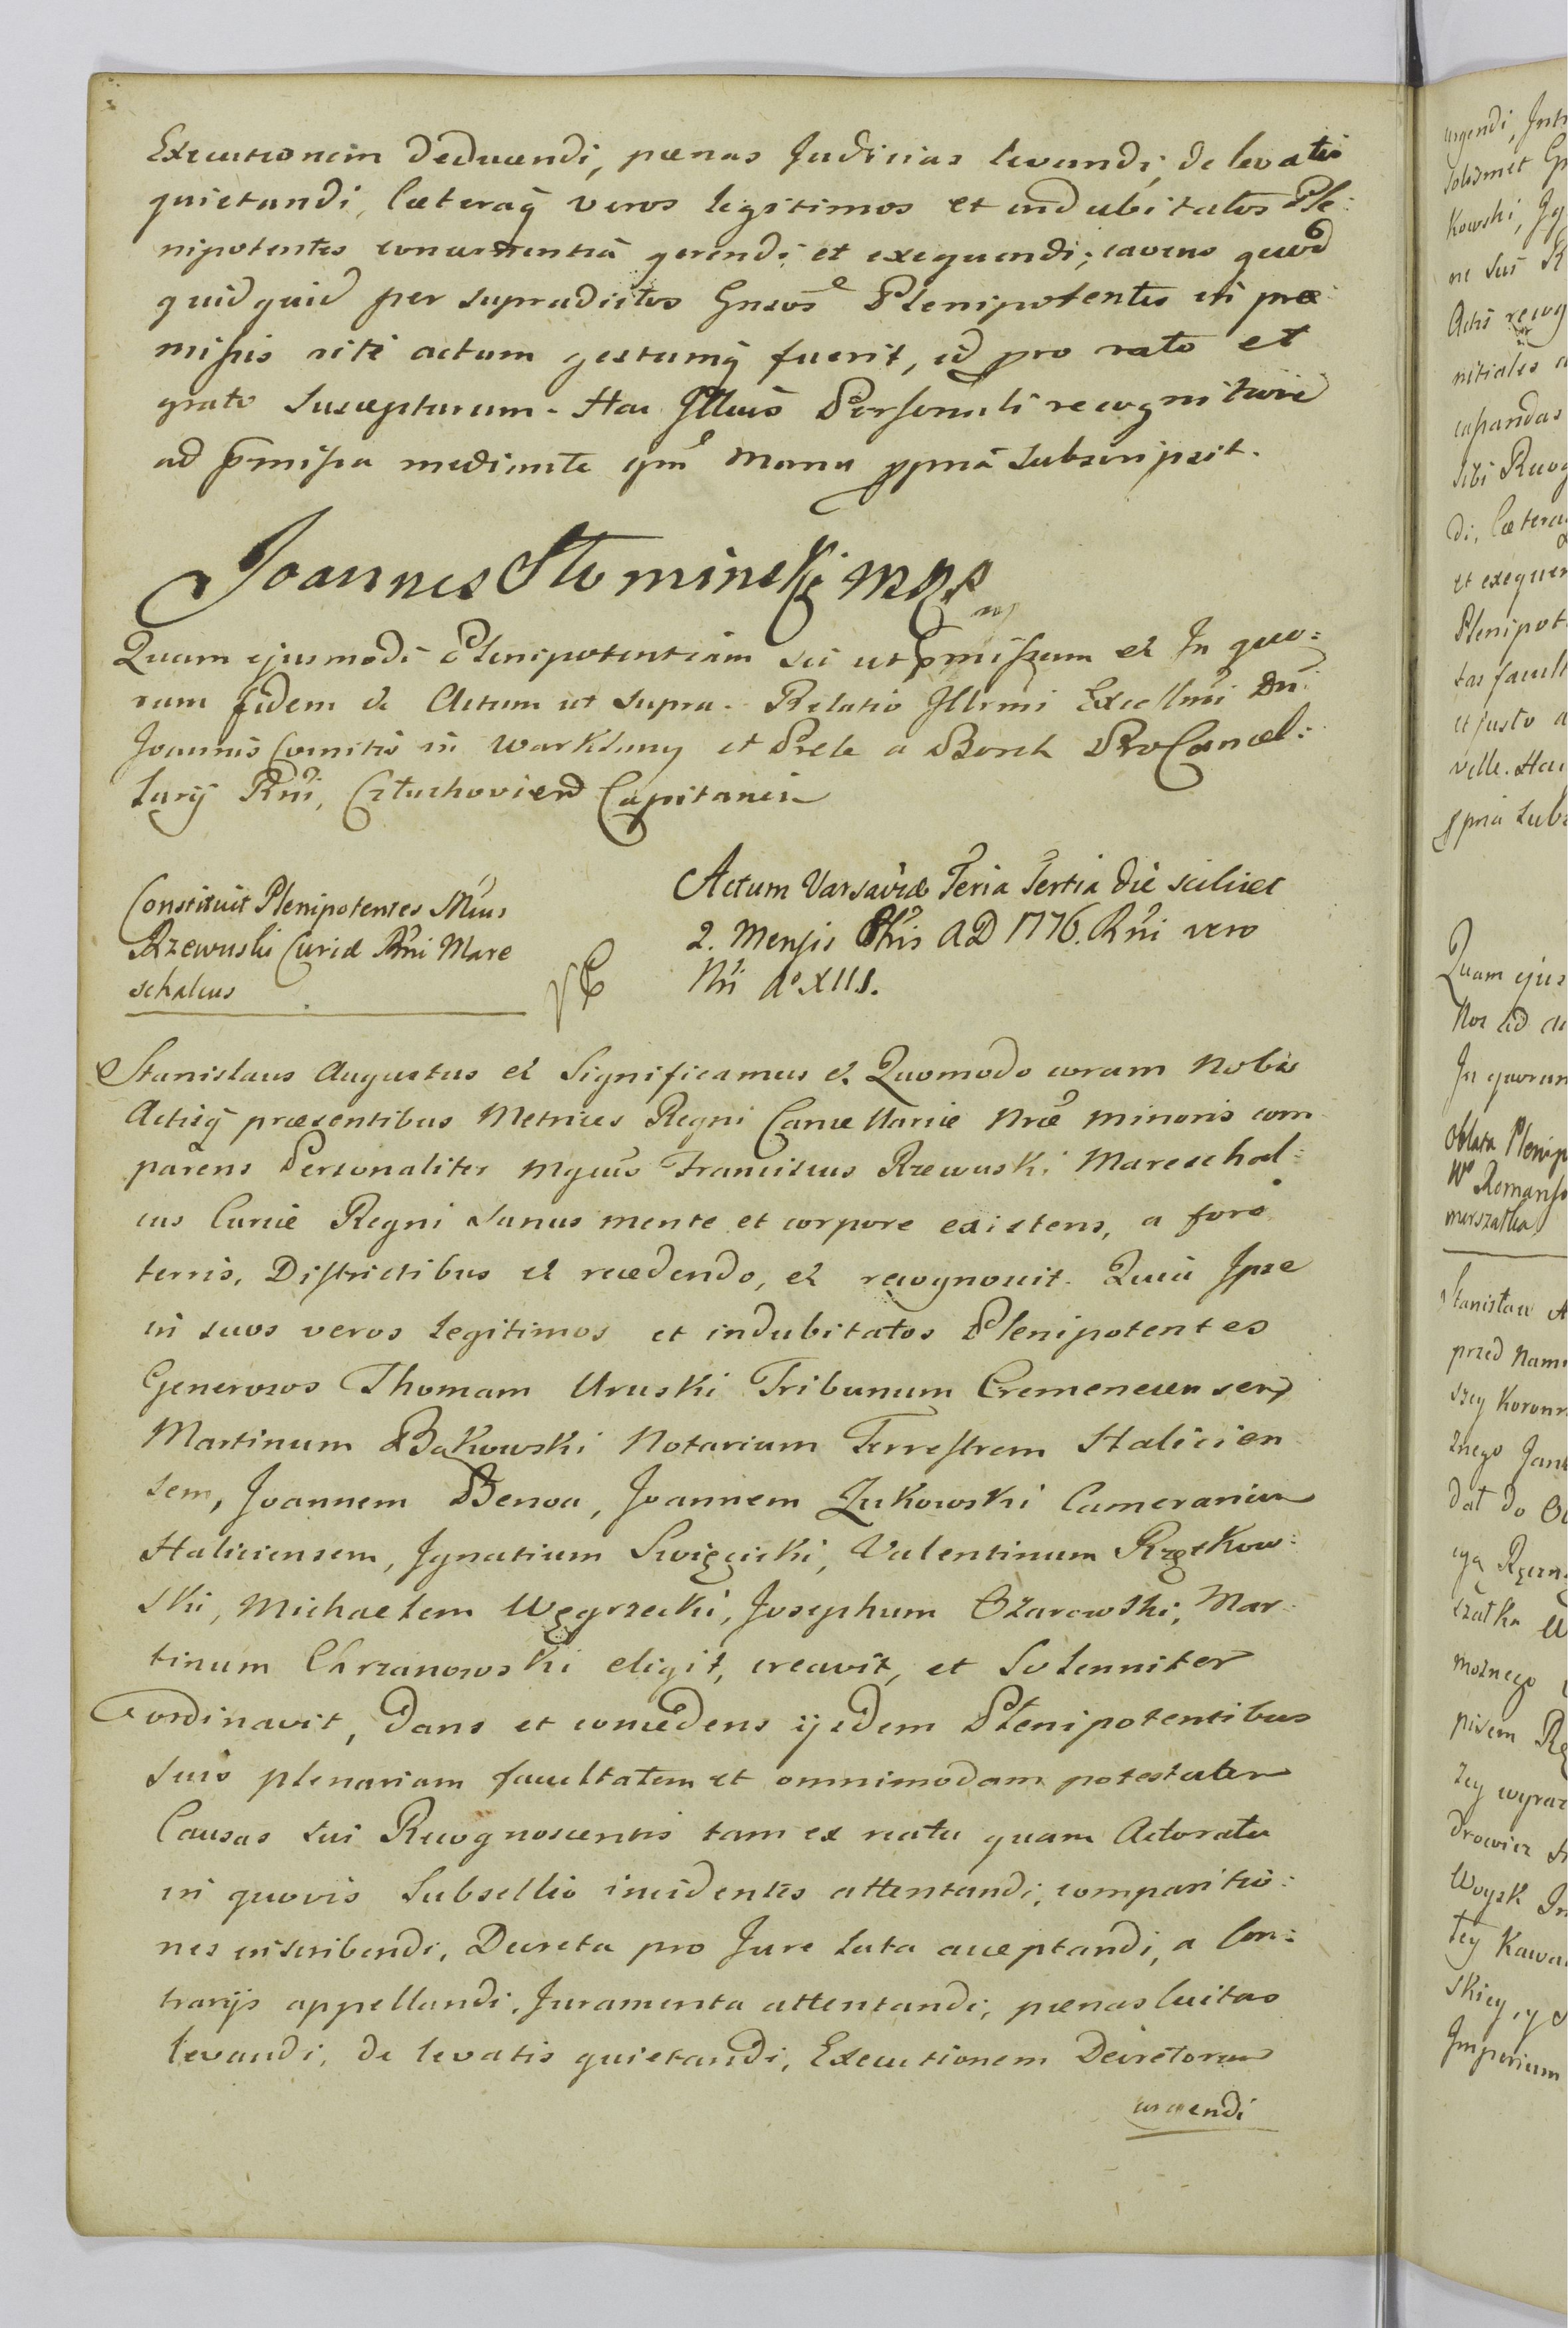 Executionem deducendi, pœnas Judicias levandi, de levatis
quietandi, Cæteraq̃ veros legitimos et indubitatos Ple:
nipotentes concernentia gerendi et exequendi; cavens quod
quidquid per supradictos Gnsos Plenipotentes in præ
missis rite actum gestumq̃ fuerit, id pro rato et
grato suscepturum. Hac Illius Personali recognitione
ad p̃missa mediante qm̃ Manu ppria subscripsit.
Joannes Słominski mpp
Quam ejusmodi Plenipotentiam sci ut p̃missum et In quo:
rum fidem & Actum ut supra. Relatio Illrmi Excellmi Dni
Joannis Comitis in Warklany et Prele a Borch ProCancel:
larij Rni, Człuchovien Capitanei
Constituit Plenipotentes Mcus
Rzewuski Curiæ Rni Mare
schalcus
Actum Varsaviæ Feria Tertia die scilicet
2. Mensis 8bris AD 1776. Rni vero
Nri Aº XIII.
Stanislaus Augustus & Significamus & Quomodo coram Nobis
Actisq̃ præsentibus Metrices Regni Cancellariæ Nræ minoris com
parens Personaliter Mgcus Franciscus Rzewuski Mareschal:
cus Curiæ Regni sanus mente et corpore existens, a foro
terris, Districtibus & recedendo, & recognovit. Quia Ipse
in suos veros legitimos et indubitatos Plenipotentes
Generosos Thomam Uruski Tribunum Cremenecensem
Martinum Bąkowski Notarium Terrestrem Halicien
sem, Joannem Benoa, Joannem Zukowski Camerarium
Haliciensem, Ignatium Swięcicki, Valentinum Rzęskow:
ski, Michaelem Węgrzecki, Josephum Ozarowski, Mar:
tinum Chrzanowski eligit, creavit, et Solenniter
ordinavit, Dans et concedens ijsdem Plenipotentibus
suis plenariam facultatem et omnimodam potestatem
Causas sui Recognoscentis tam ex reatu quam Actoratu
in quovis Subsellio incidentes attentandi, comparitio:
nes inscribendi, Decreta pro Jure lata acceptandi, a Con:
trarijs appellandi, Juramenta attentandi, pœnas luitas
levandi, de levatis quietandi, Executionem Decretorum
urgendi
urgendi,
Kowski,
Actis
nitiales
capandas
sibi Recog
di, Cætera
et exequen
Plenipot
tas facult
et justo a
velle. Hac
ppria Subs
Quam ejus
Nos ad
In quorum
Oblata Plenip
marszałka
Stanisław A
przed Nami
szey Koronn
znego
dał do
możnego
pisem
zey wyraz
Woysk
tey Kawa
skiey, y
Imperium